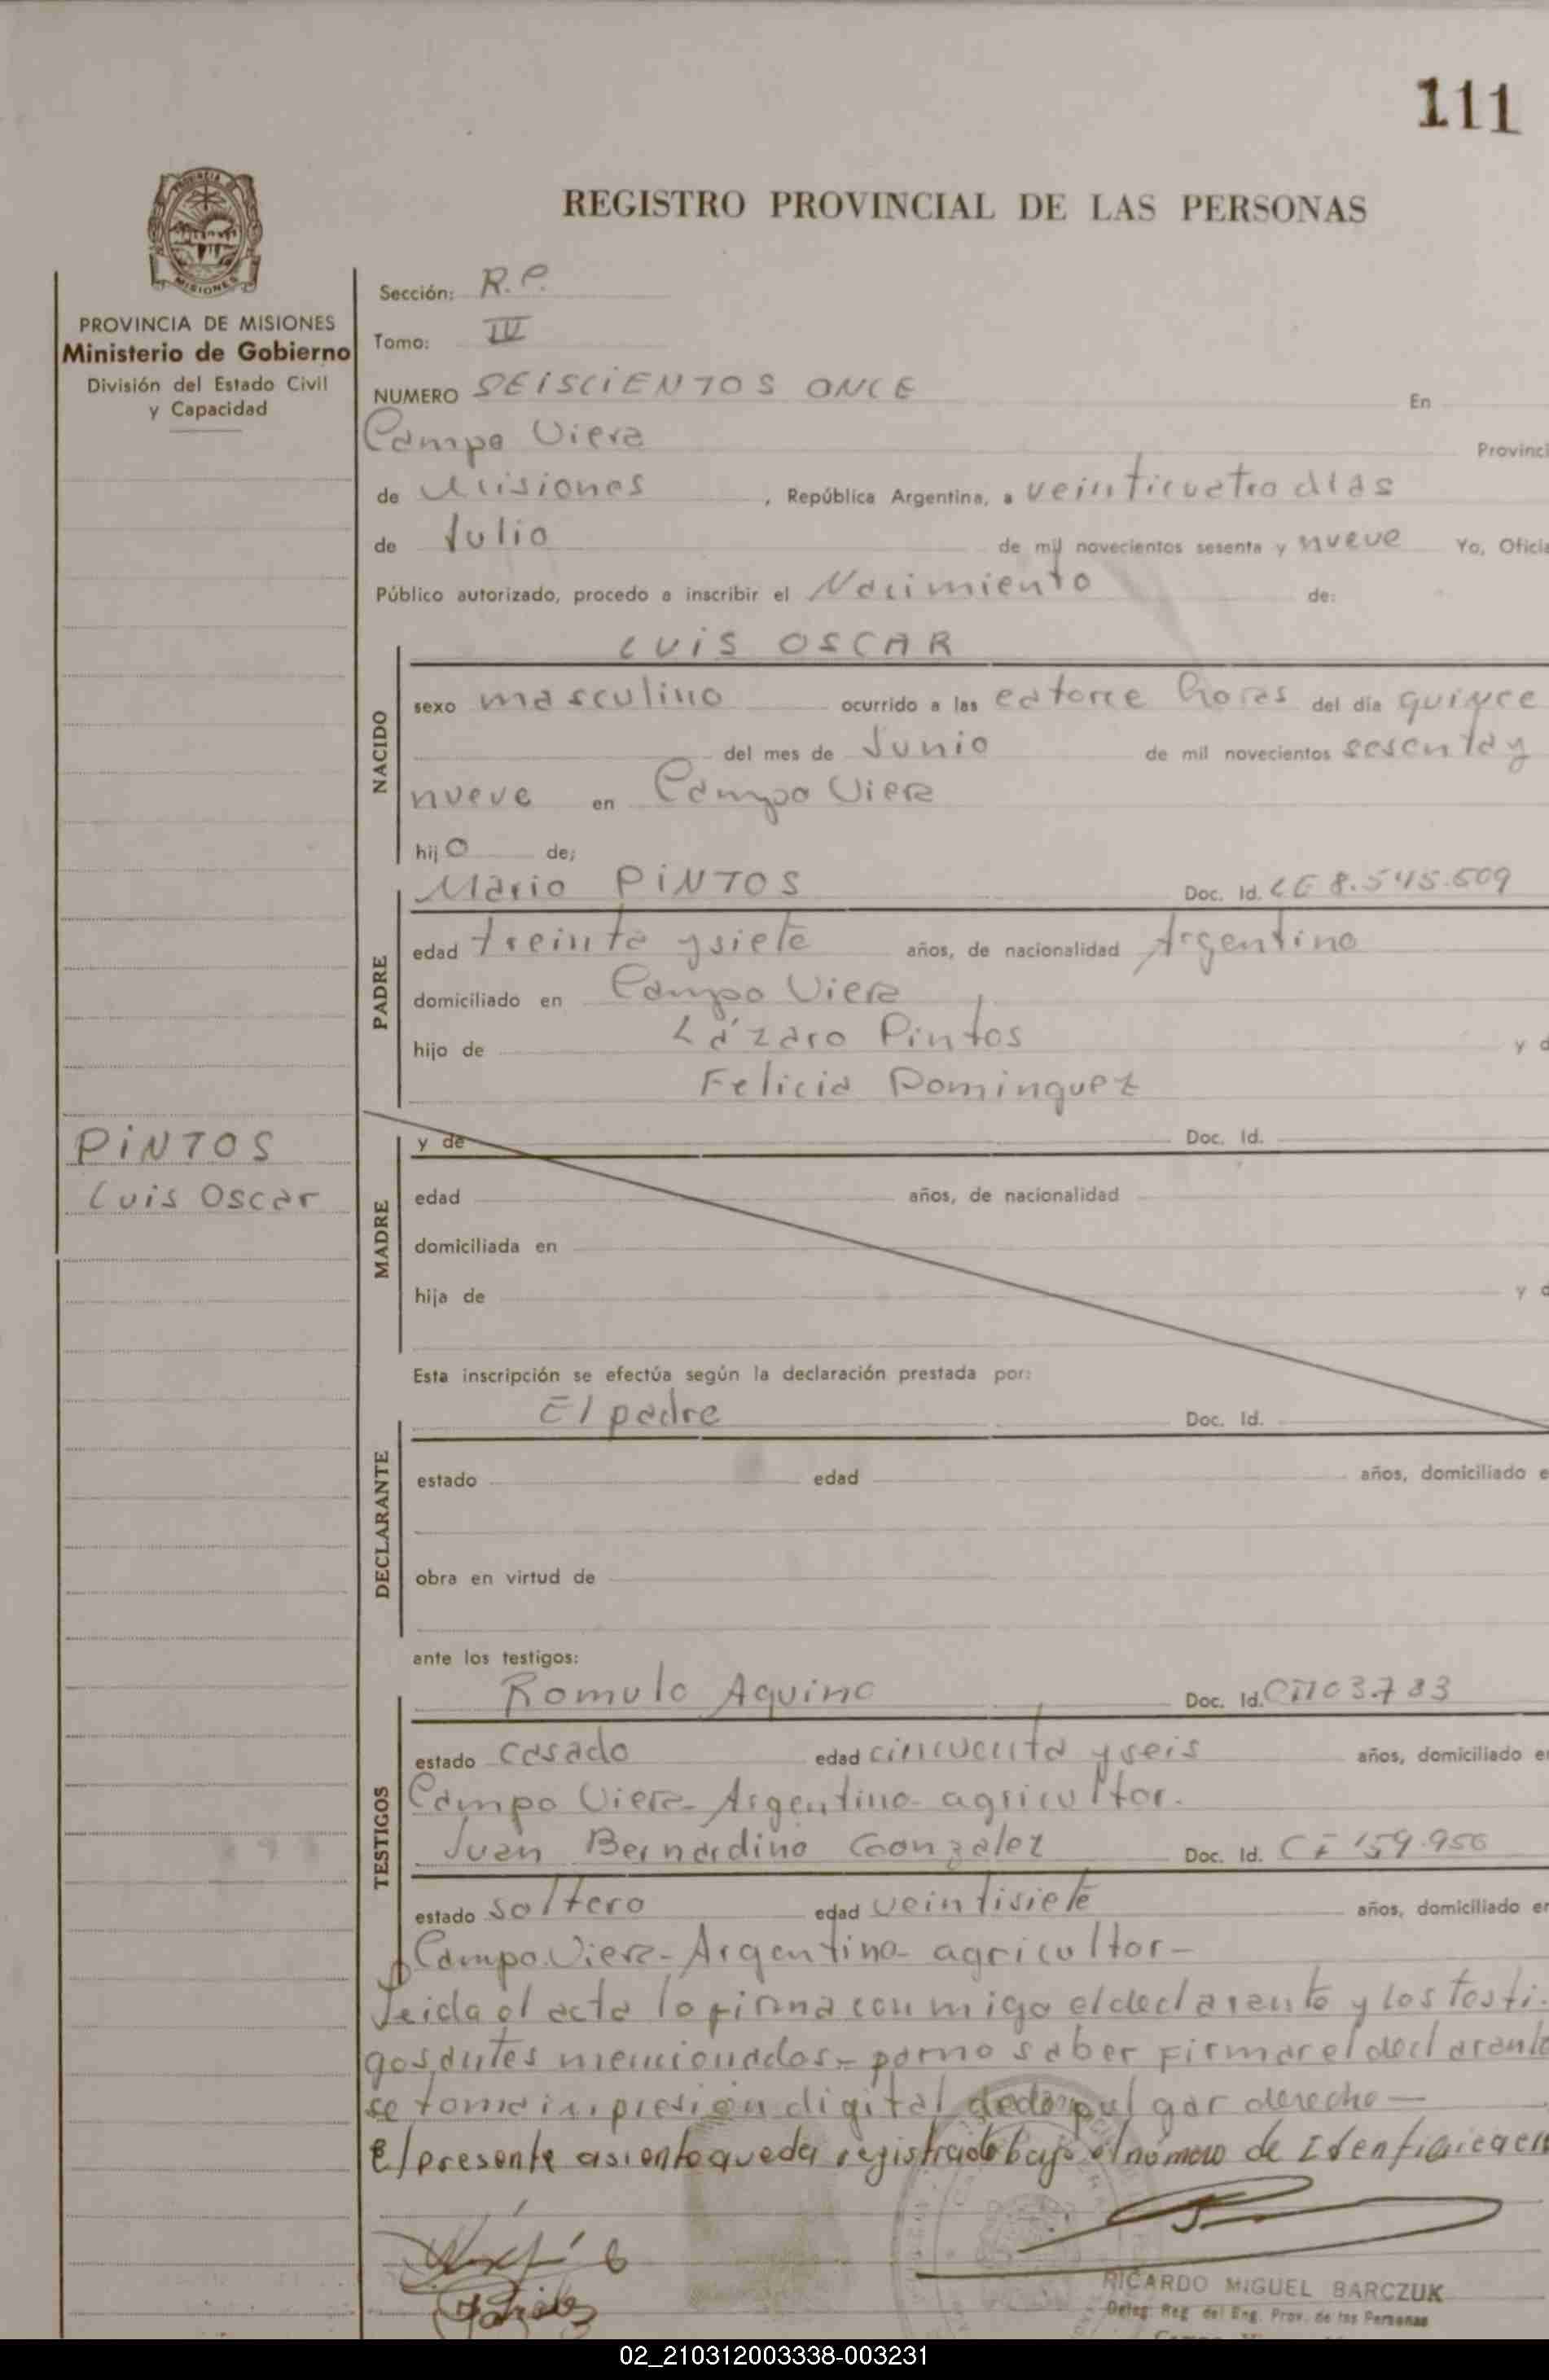 111
REGISTRO PROVINCIAL DE LAS PERSONAS
MISIONES
PROVINCIA DE MISIONES
Ministerio de Gobierno
División del Estado Civil
y Capacidad
Sección: R.P.
Tomo: IV
NUMERO SEISCIENTOS ONCE En
Campo Viera Provinci
de Misiones , República Argentina, a veinticuatro dias
de Julio de mil novecientos sesenta y nueve Yo, Oficia
Público autorizado, procedo a inscribir el Nacimiento de:
LUIS OSCAR
NACIDO
sexo masculino ocurrido a las catorce horas del día quince
del mes de Junio de mil novecientos sesenta y
nueve en Campo Viera
hijo de;
Mario PINTOS Doc. Id. LE 8.545.609
PADRE
edad treinta y siete años, de nacionalidad Argentino
domiciliado en Campo Viera
hijo de Lázaro Pintos y d
Felicia Dominguez
PINTOS
Luis Oscar
MADRE
y de Doc. Id.
edad años, de nacionalidad
domiciliada en
hija de y d
Esta inscripción se efectúa según la declaración prestada por:
El padre Doc. Id.
DECLARANTE
estado edad años, domiciliado e
obra en virtud de
ante los testigos:
Romulo Aquino Doc. Id.
TESTIGOS
estado casado edad cincuenta y seis años, domiciliado en
Campo Viera- Argentino- agricultor.
Juan Bernardino Gonzalez Doc. Id. CI 159.956
estado soltero edad veintisiete años, domiciliado en
Campo Viera- Argentino- agricultor-
Leida el acta lo firma conmigo el declarante y los testi-
gos antes mencionados.- por no saber firmar el declarante
se toma impresión digital dedo pulgar derecho—
El presente asiento queda registrado bajo el número de
RICARDO MIGUEL BARCZUK
Deleg. Reg. del Reg. Prov. de las Personas
02_210312003338-003231